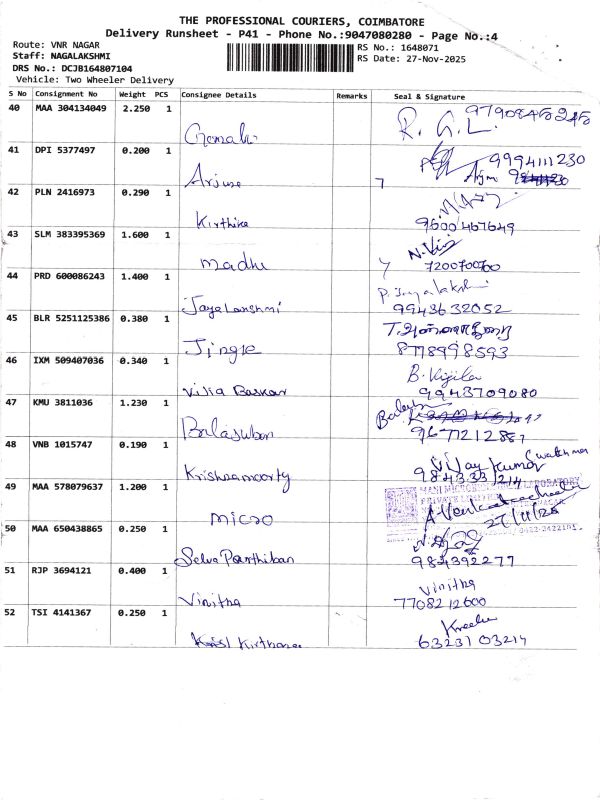 THE PROFESSIONAL COURIERS, COIMBATORE
Delivery Runsheet - P41 - Phone No.:9047080280 - Page No.:4
Route: VNR NAGAR
RS No.: 1648071
Staff: NAGALAKSHMI
RS Date: 27-Nov-2025
DRS No.: DCJB164807104
Vehicle: Two Wheeler Delivery
S No Consignment No Weight PCS Consignee Details Remarks Seal & Signature
40 MAA 304134049 2.250 1
R. G.L.
41 DPI 5377497 0.200 1
Arjun 9994111230
42 PLN 2416973 0.290 1
Kirthika 9600467649
43 SLM 383395369 1.600 1
madhu
44 PRD 600086243 1.400 1
P. Jayalakshmi
Jayalakshmi 9943632052
45 BLR 5251125386 0.380 1
Jingle 8778998593
46 IXM 509407036 0.340 1
9943709080
47 KMU 3811036 1.230 1
9677212887
48 VNB 1015747 0.190 1
Vijay Kumar
Krishnamoorty
49 MAA 578079637 1.200 1
micro
27/11/25
50 MAA 650438865 0.250 1
Selva Parthiban 984392277
51 RJP 3694121 0.400 1
Vinitha
Vinitha 7708212600
52 TSI 4141367 0.250 1
Kirthana 63231 03214